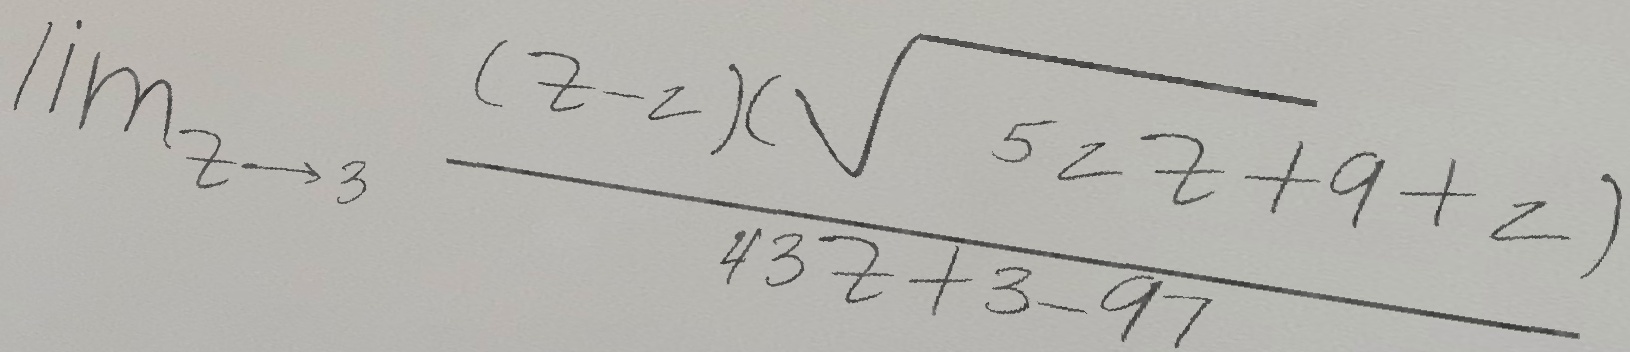 \lim_{z \to 3} \frac{(z-2)(\sqrt{52z+9}+2)}{43z+3-97}